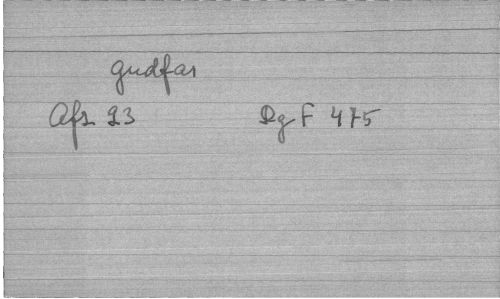 gudfar
Afs 23 DgF 475